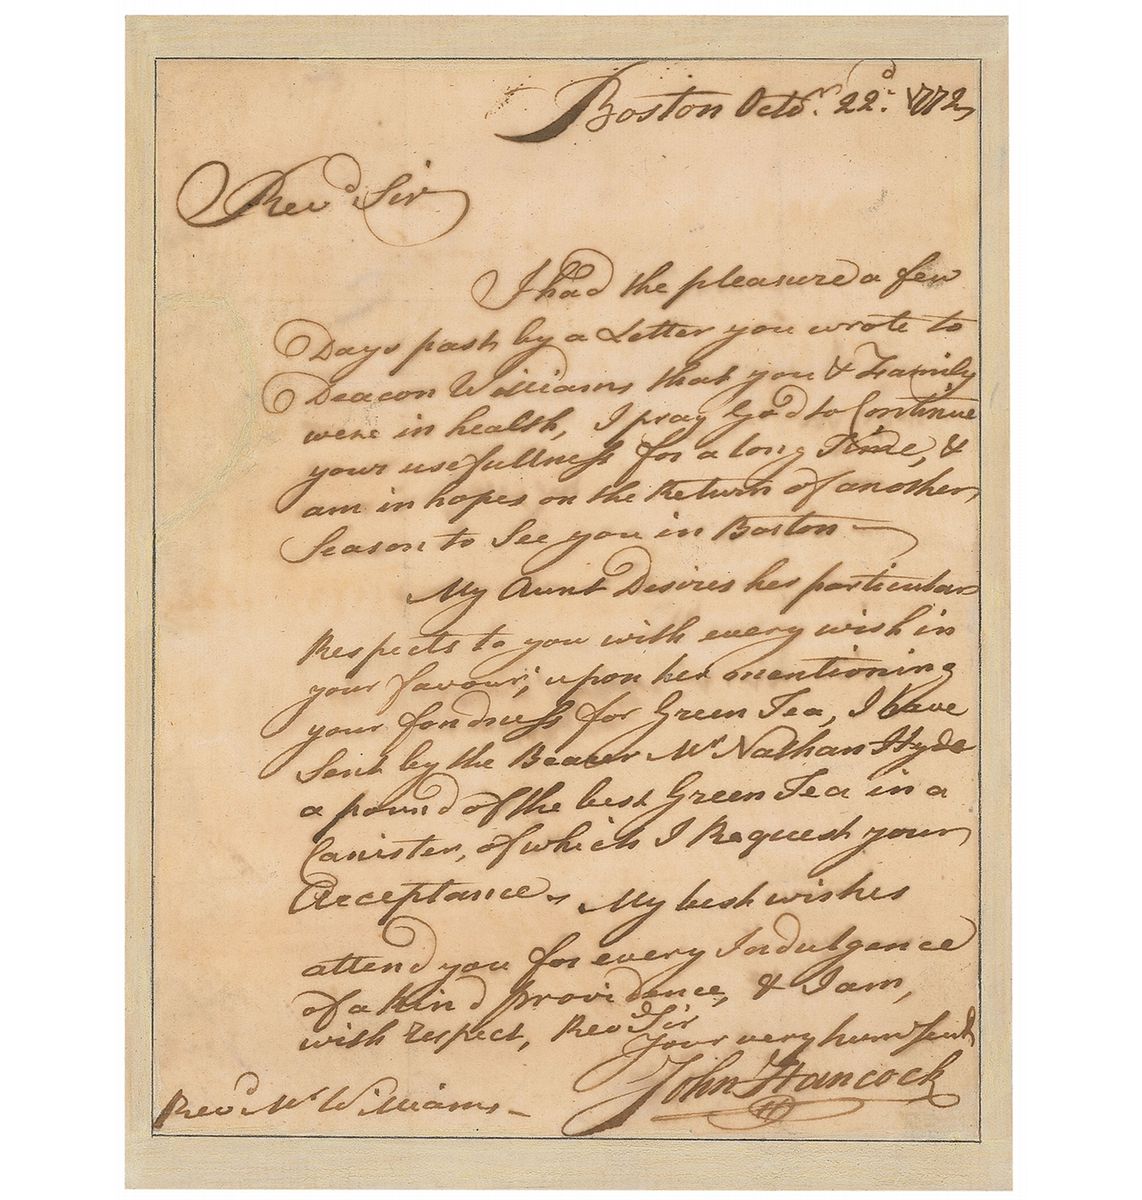 Boston Octor. 22d. 1772,
Revd Sir
I had the pleasure a few
Days past by a Letter you wrote to
Deacon Williams that you & Family
were in health, I pray God to Continue
your usefullness for a long Time, &
am in hopes on the Return of another
Season to See you in Boston —
My Aunt Desires her particular
Respects to you with every wish in
your favour; upon her mentioning
your fondness for Green Tea, I have
Sent by the Bearer Mr Nathan Hyde
a pound of the best Green Tea in a
Canister, of which I Request your
Acceptance, My best wishes
attend you for every Indulgence
of a Kind providence, & I am,
with respect, Revd Sir
Your very hum Servt
John Hancock
Revd Mr Williams –